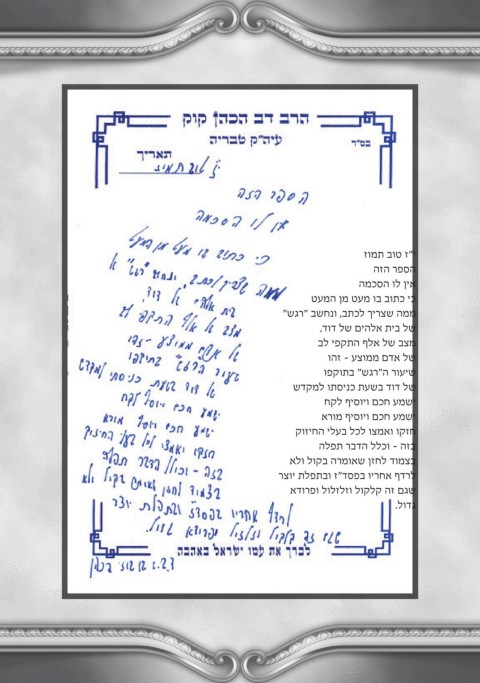 הרב דב הכהן קוק
עיה"ק טבריה
בס"ד
תאריך
י"ז טוב תמוז
הספר הזה
אין לו הסכמה
כי כתוב בו מעט מן המעט
ממה שצריך לכתב, ונחשב "רגש" א
בית אלהים א דוד,
מצב א אלף התקפי לב
א אדם ממוצע - זהו
שיעור ה"רגש" בתוקפו
א דוד בשעת כניסתו למקדש
ישמע חכם ויוסיף לקח
ישמע חכם ויוסיף מורא
חזקו ואמצו לכל בעלי החיזוק
בזה - וכלל הדבר תפלה
בצמוד לחזן שאומרה בקול ולא
לרדף אחריו בפסד"ז ובתפלת יוצר
שגם זה קלקול וזלזול ופרודא גדול.
לברך את עמו ישראל באהבה
"ז טוב תמוז
הספר הזה
אין לו הסכמה
כי כתוב בו מעט מן המעט
ממה שצריך לכתב, ונחשב "רגש"
של בית אלהים של דוד,
מצב של אלף התקפי לב
של אדם ממוצע - זהו
שיעור ה"רגש" בתוקפו
של דוד בשעת כניסתו למקדש
ישמע חכם ויוסיף לקח
ישמע חכם ויוסיף מורא
חזקו ואמצו לכל בעלי החיזוק
בזה - וכלל הדבר תפלה
בצמוד לחזן שאומרה בקול ולא
לרדף אחריו בפסד"ז ובתפלת יוצר
שגם זה קלקול וזלזול ופרודא
גדול.